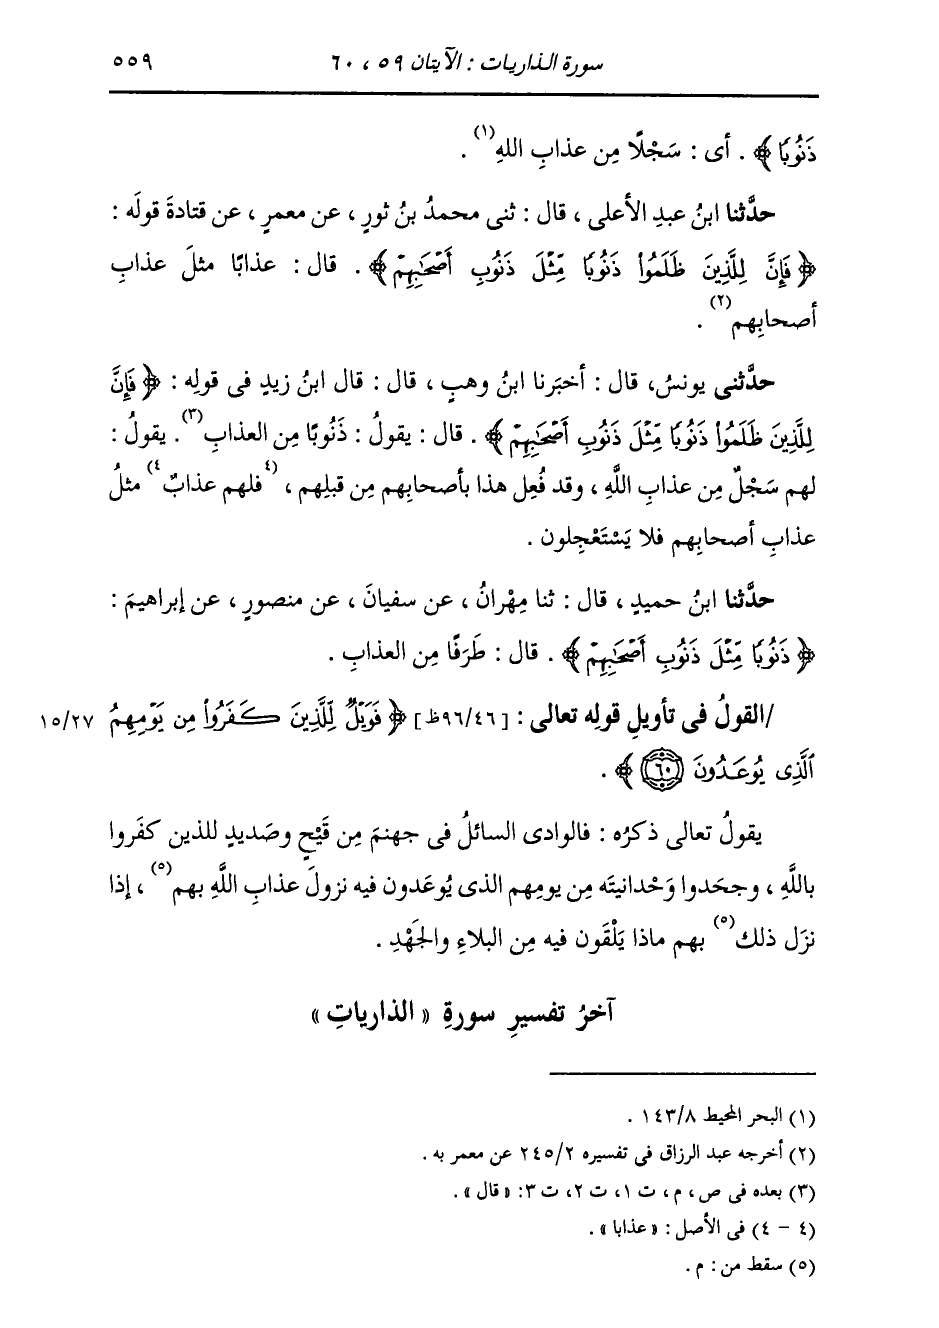 سورة الذاريات : الآيتان ٥٩ ، ٦٠ ٥٥٩
ذَنُوبًا ﴾ . أى : سَجْلًا مِن عذابِ اللهِ(١) .
حدَّثنا ابنُ عبدِ الأعلى ، قال : ثنى محمدُ بنُ ثورٍ ، عن معمرٍ ، عن قتادةَ قولَه :
﴿ فَإِنَّ لِلَّذِينَ ظَلَمُوا۟ ذَنُوبًا مِّثْلَ ذَنُوبِ أَصْحَٰبِهِمْ ﴾ . قال : عذابًا مثلَ عذابِ
أصحابِهم(٢) .
حدَّثنى يونسُ، قال : أخبَرنا ابنُ وهبٍ ، قال : قال ابنُ زيدٍ فى قولِه : ﴿ فَإِنَّ
لِلَّذِينَ ظَلَمُوا۟ ذَنُوبًا مِّثْلَ ذَنُوبِ أَصْحَٰبِهِمْ ﴾ . قال : يقولُ : ذَنُوبًا مِن العذابِ(٣). يقولُ :
لهم سَجْلٌ مِن عذابِ اللَّهِ ، وقد فُعِل هذا بأصحابِهم مِن قبلِهم ، (٤فلهم عذابٌ٤) مثلُ
عذابِ أصحابِهم فلا يَسْتَعْجِلون .
حدَّثنا ابنُ حميدٍ ، قال : ثنا مِهْرانُ ، عن سفيانَ ، عن منصورٍ ، عن إبراهيمَ :
﴿ ذَنُوبًا مِّثْلَ ذَنُوبِ أَصْحَٰبِهِمْ ﴾ . قال : طَرَفًا مِن العذابِ .
/القولُ فى تأويلِ قولِه تعالى : [٩٦/٤٦ظ] ﴿ فَوَيْلٌ لِّلَّذِينَ كَفَرُوا۟ مِن يَوْمِهِمُ ١٥/٢٧
ٱلَّذِى يُوعَدُونَ ٦٠ ﴾ .
يقولُ تعالى ذكرُه : فالوادى السائلُ فى جهنمَ مِن قَيْحٍ وصَديدٍ للذين كفَروا
باللَّهِ ، وجحَدوا وَحْدانيتَه مِن يومِهم الذى يُوعَدون فيه نزولَ عذابِ اللَّهِ بهم(٥) ، إذا
نزَل ذلك(٥) بهم ماذا يَلْقَون فيه مِن البلاءِ والجَهْدِ .
آخرُ تفسيرِ سورةِ « الذارياتِ »
(١) البحر المحيط ١٤٣/٨ .
(٢) أخرجه عبد الرزاق فى تفسيره ٢٤٥/٢ عن معمر به .
(٣) بعده فى ص ، م ، ت ١، ت ٢، ت ٣: « قال » .
(٤ - ٤) فى الأصل : « عذابا » .
(٥) سقط من : م .